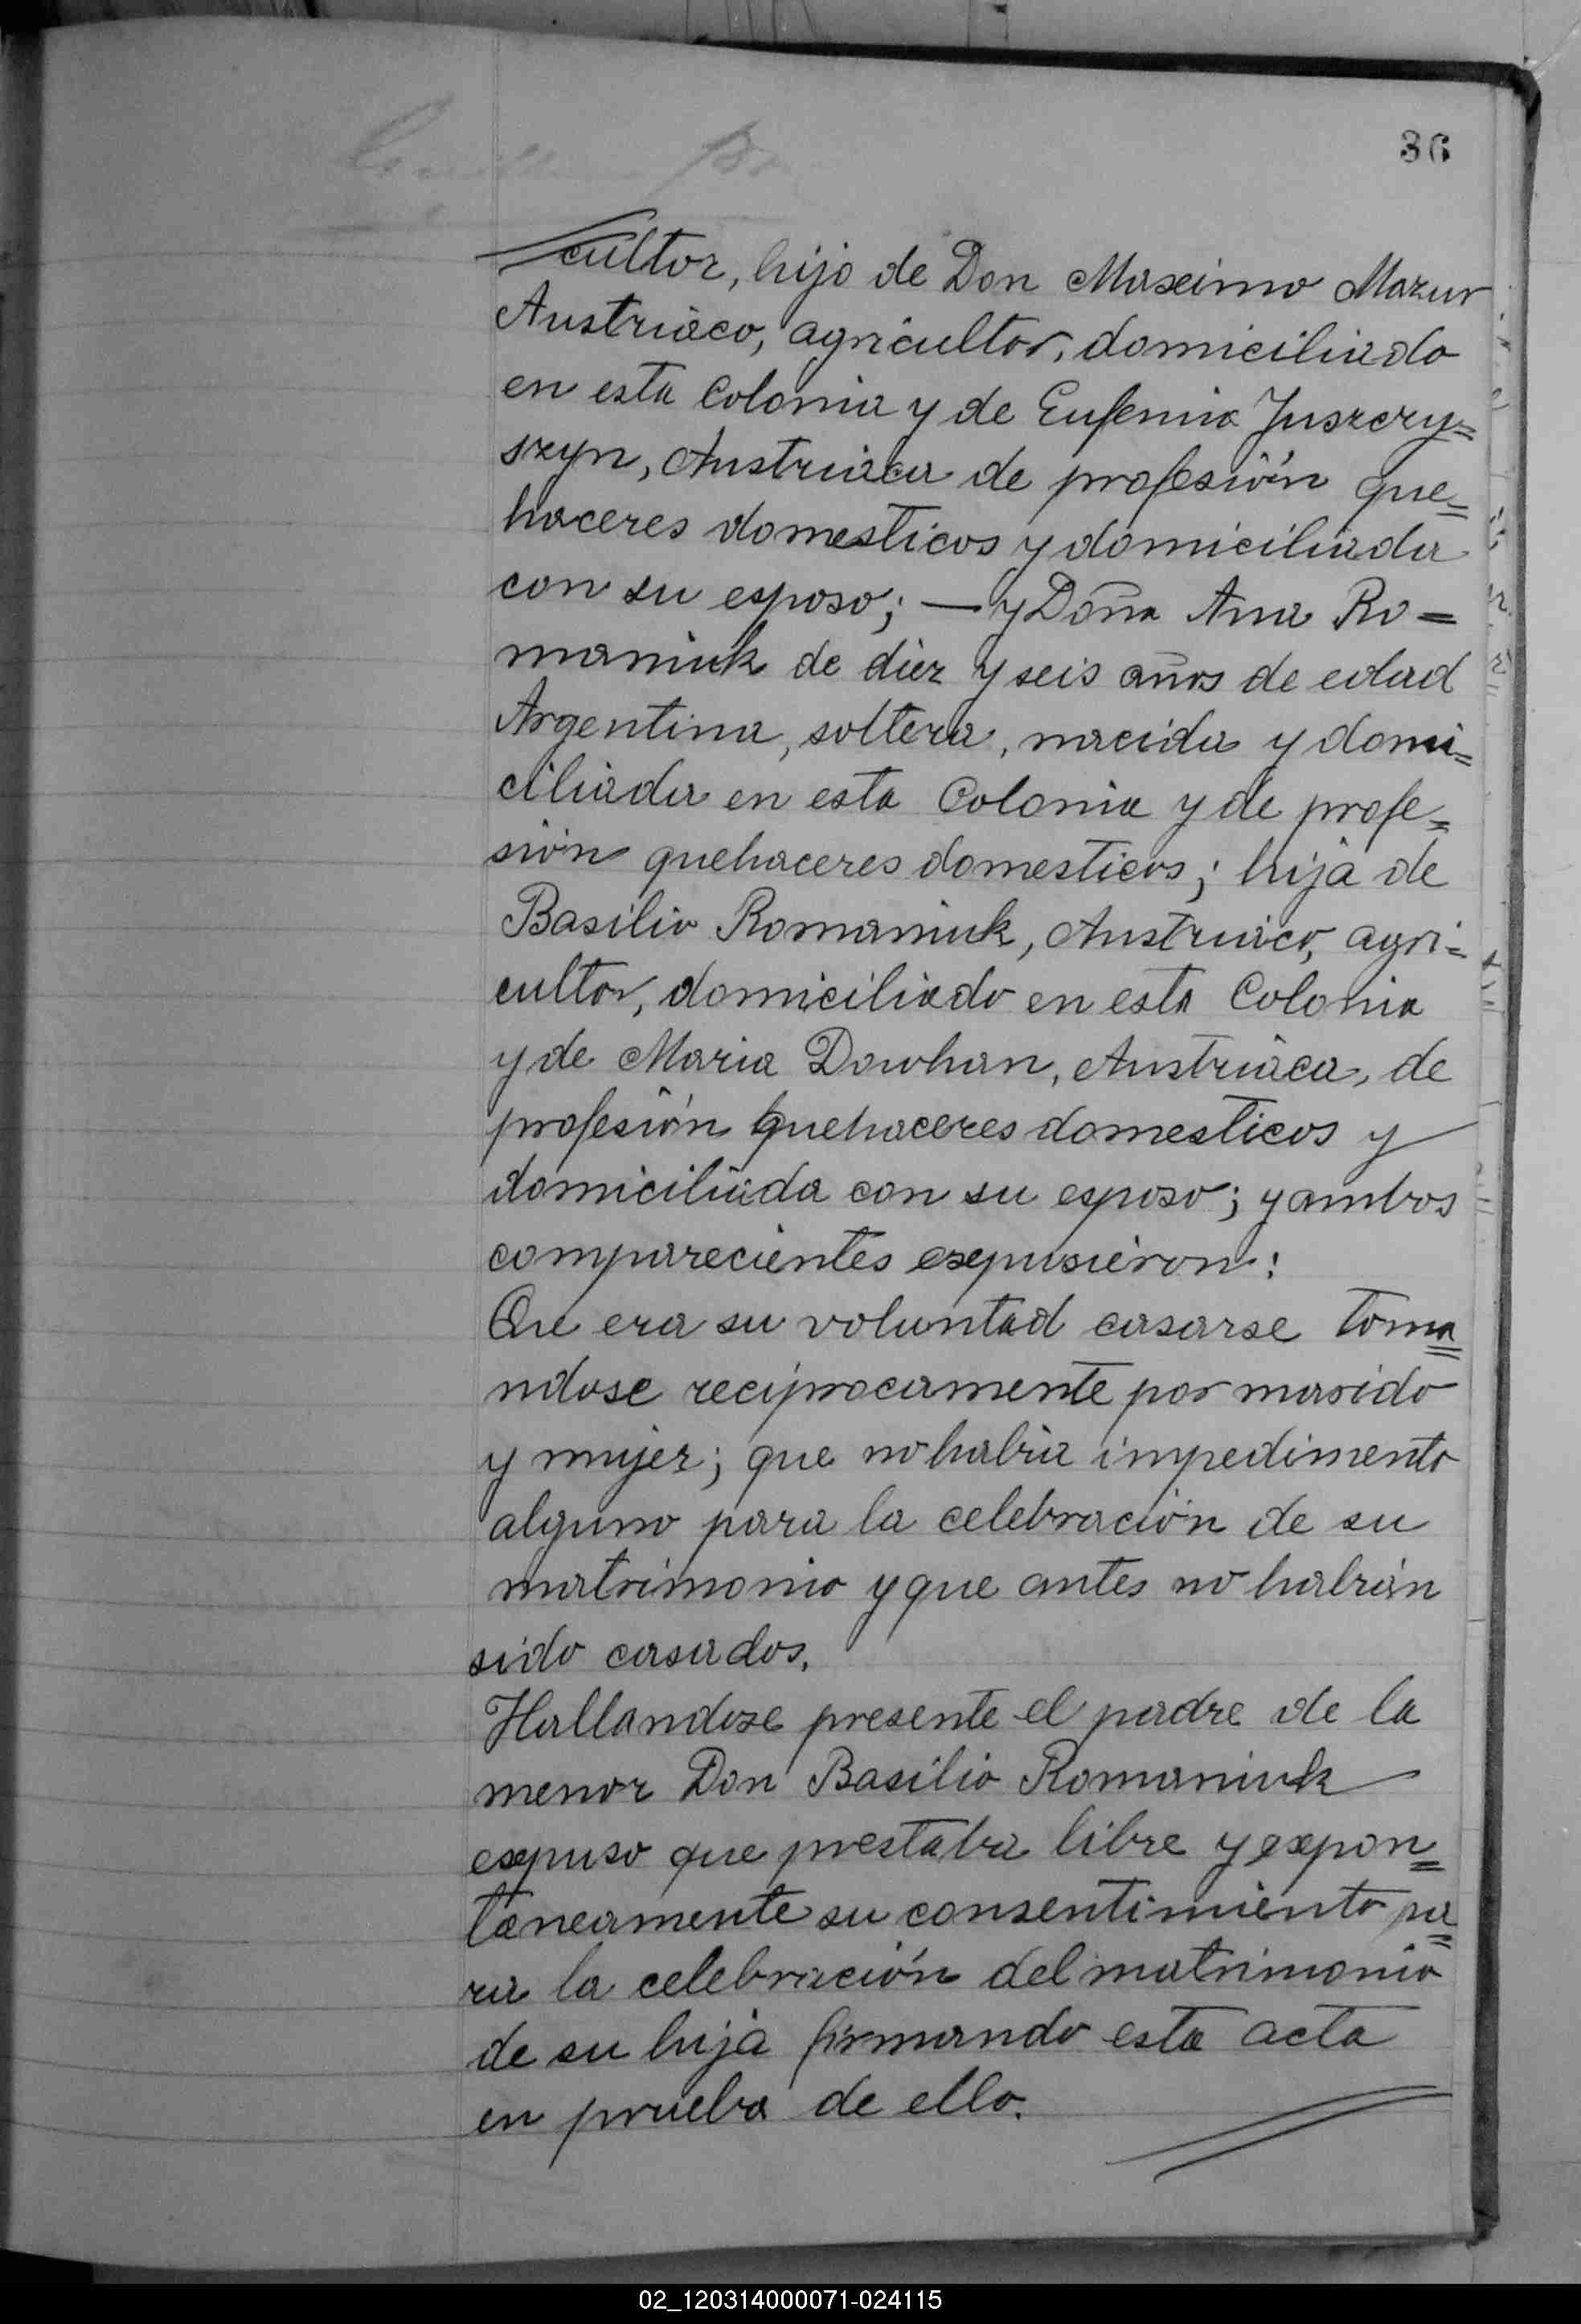 36
cultor, hijo de Don Maximo Mazur
Austriaco, agricultor, domiciliado
en esta Colonia y de Eufemia Juszczy=
szyn, Austriaca de profesión que=
haceres domesticos y domiciliada
con su esposo; — y Doña Ana Ro=
maniuk de diez y seis años de edad
Argentina, soltera, nacida y domi=
ciliada en esta Colonia y de profe=
sión quehaceres domesticos; hija de
Basilio Romaniuk, Austriaco, agri=
cultor, domiciliado en esta Colonia
y de Maria Dowhan, Austriaca, de
profesión quehaceres domesticos y
domiciliada con su esposo; y ambos
comparecientes expusieron:
Que era su voluntad casarse toma=
ndose reciprocamente por marido
y mujer; que no habia impedimento
alguno para la celebración de su
matrimonio y que antes no habian
sido casados.
Hallandose presente el padre de la
menor Don Basilio Romaniuk
expuso que prestaba libre y expon=
taneamente su consentimiento pa=
ra la celebración del matrimonio
de su hija firmando esta acta
en prueba de ello.
02_120314000071-024115